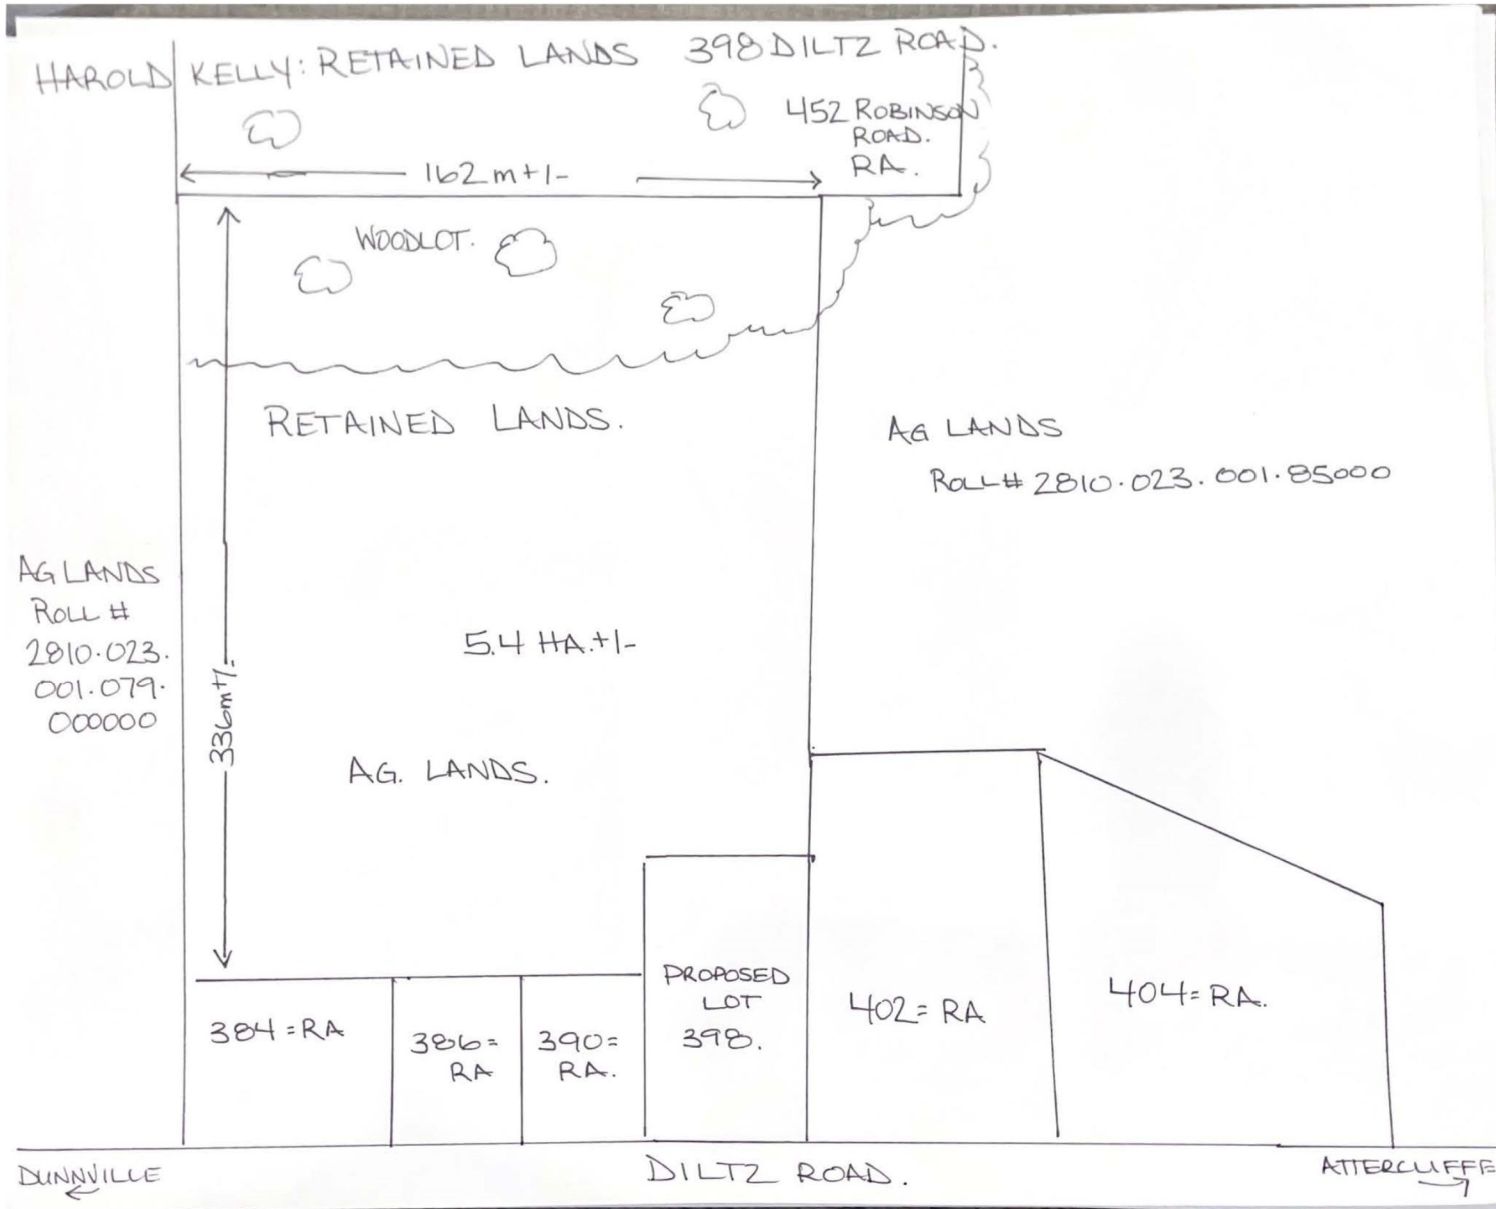 HAROLD KELLY: RETAINED LANDS 398 DILTZ ROAD.
452 ROBINSON
ROAD.
RA.
162 m+/-
WOODLOT.
RETAINED LANDS.
AG LANDS
ROLL# 2810.023.001.85000
AG LANDS
ROLL #
2810.023.
001.079.
000000
336m+/-
5.4 HA.+/-
AG. LANDS.
PROPOSED
LOT
398.
384=RA
386=
RA
390=
RA.
402=RA
404=RA.
DUNNVILLE
DILTZ ROAD.
ATTERCLIFFE